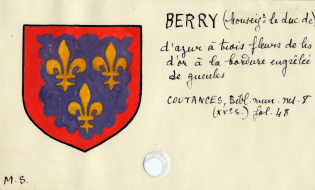 BERRY (Monseigr le duc de)
d'azur à trois fleurs de lis
d'or à la bordure engrêlée
de gueules
COUTANCES, Bibl. mun. ms. 8
(XVe s.) fol. 48
M.S.